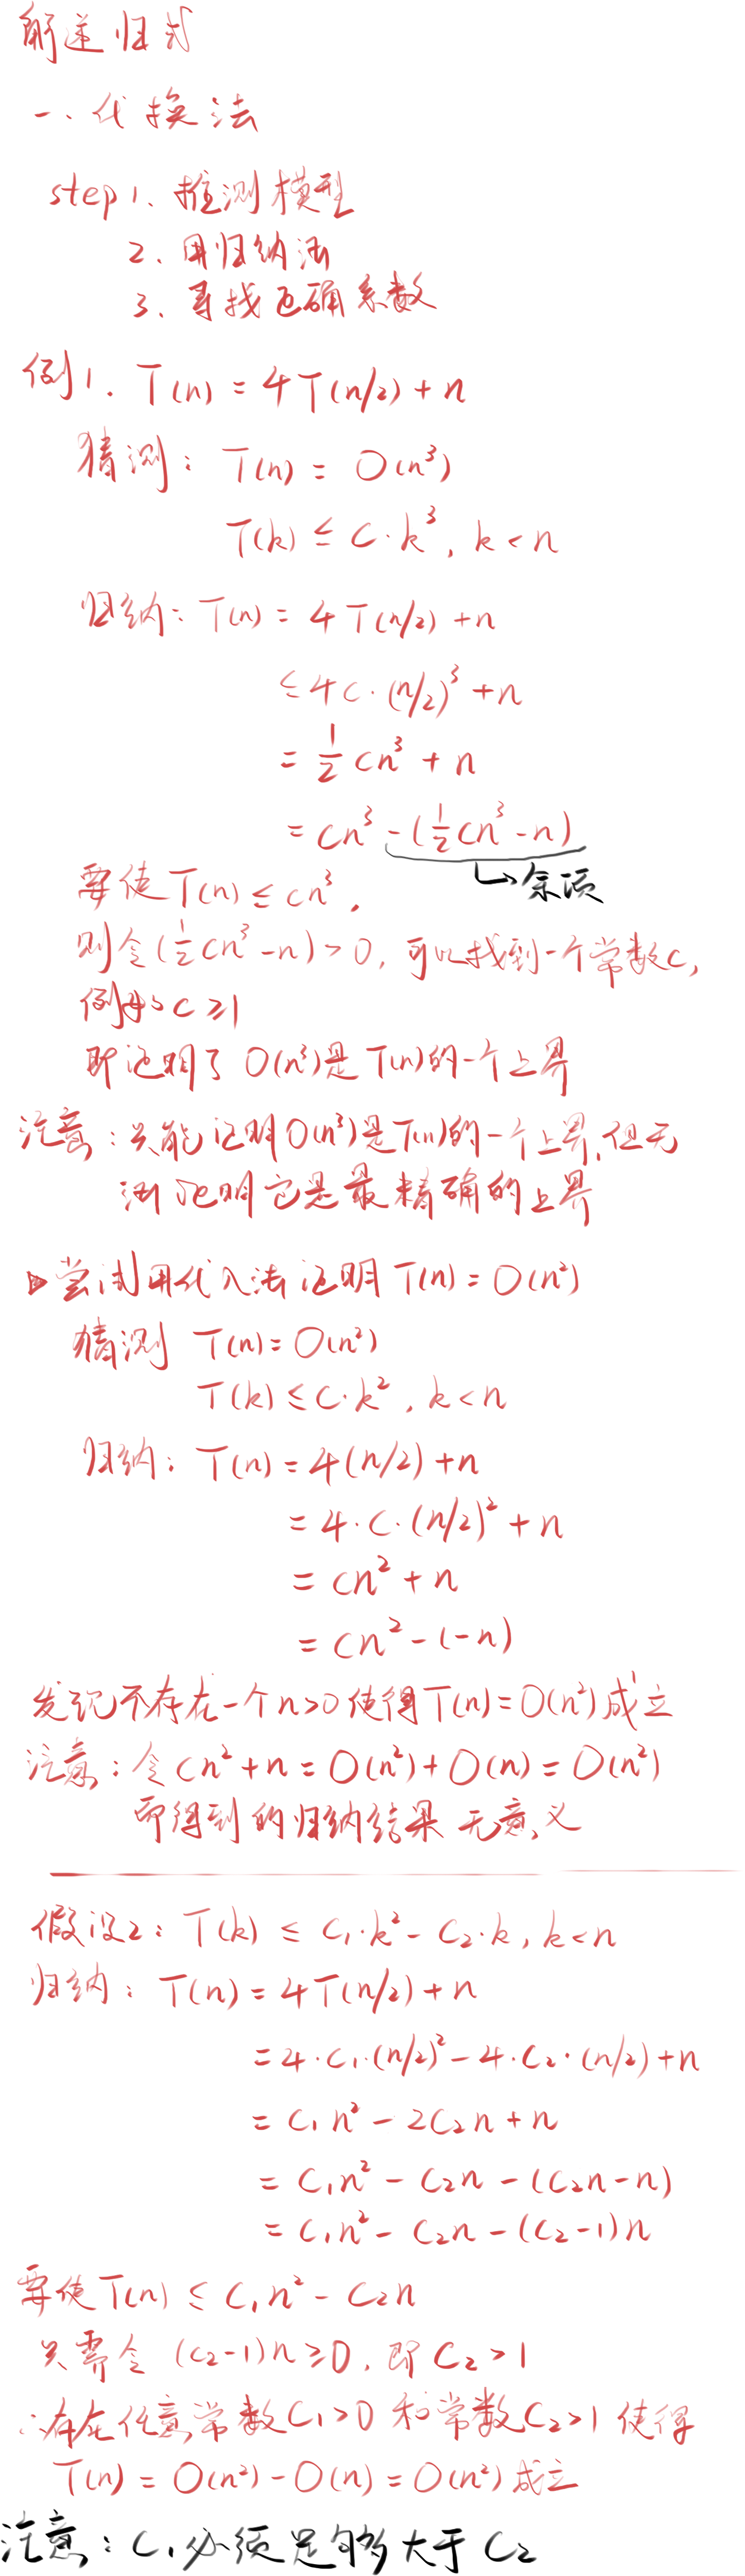 解递归式
一、代换法
step 1、推测模型
2、用归纳法
3、寻找正确系数
例1. T(n) = 4T(n/2) + n
猜测: T(n) = O(n³)
T(k) ≤ C·k³, k < n
归纳: T(n) = 4T(n/2) + n
≤ 4C·(n/2)³ + n
= 1/2 cn³ + n
= cn³ - (1/2 cn³ - n)
↳ 余项
要使 T(n) ≤ cn³,
则令 (1/2 cn³ - n) > 0, 可以找到一个常数C,
例如 C ≥ 1
即证明了 O(n³)是 T(n)的一个上界
注意: 只能证明O(n³)是T(n)的一个上界,但无
法证明它是最精确的上界
▷ 尝试用代入法证明 T(n) = O(n²)
猜测 T(n) = O(n²)
T(k) ≤ C·k², k < n
归纳: T(n) = 4(n/2) + n
= 4·C·(n/2)² + n
= cn² + n
= cn² - (-n)
发现不存在一个n>0使得T(n) = O(n²)成立
注意: 令 cn² + n = O(n²) + O(n) = O(n²)
而得到的归纳结果无意义
假设2: T(k) ≤ C₁·k² - C₂·k, k < n
归纳: T(n) = 4T(n/2) + n
= 4·C₁·(n/2)² - 4·C₂·(n/2) + n
= C₁n² - 2C₂n + n
= C₁n² - C₂n - (C₂n - n)
= C₁n² - C₂n - (C₂-1)n
要使T(n) ≤ C₁n² - C₂n
只需令 (C₂-1)n ≥ 0, 即 C₂ > 1
∴存在任意常数C₁>0 和常数C₂>1 使得
T(n) = O(n²) - O(n) = O(n²) 成立
注意: C₁必须足够大于 C₂